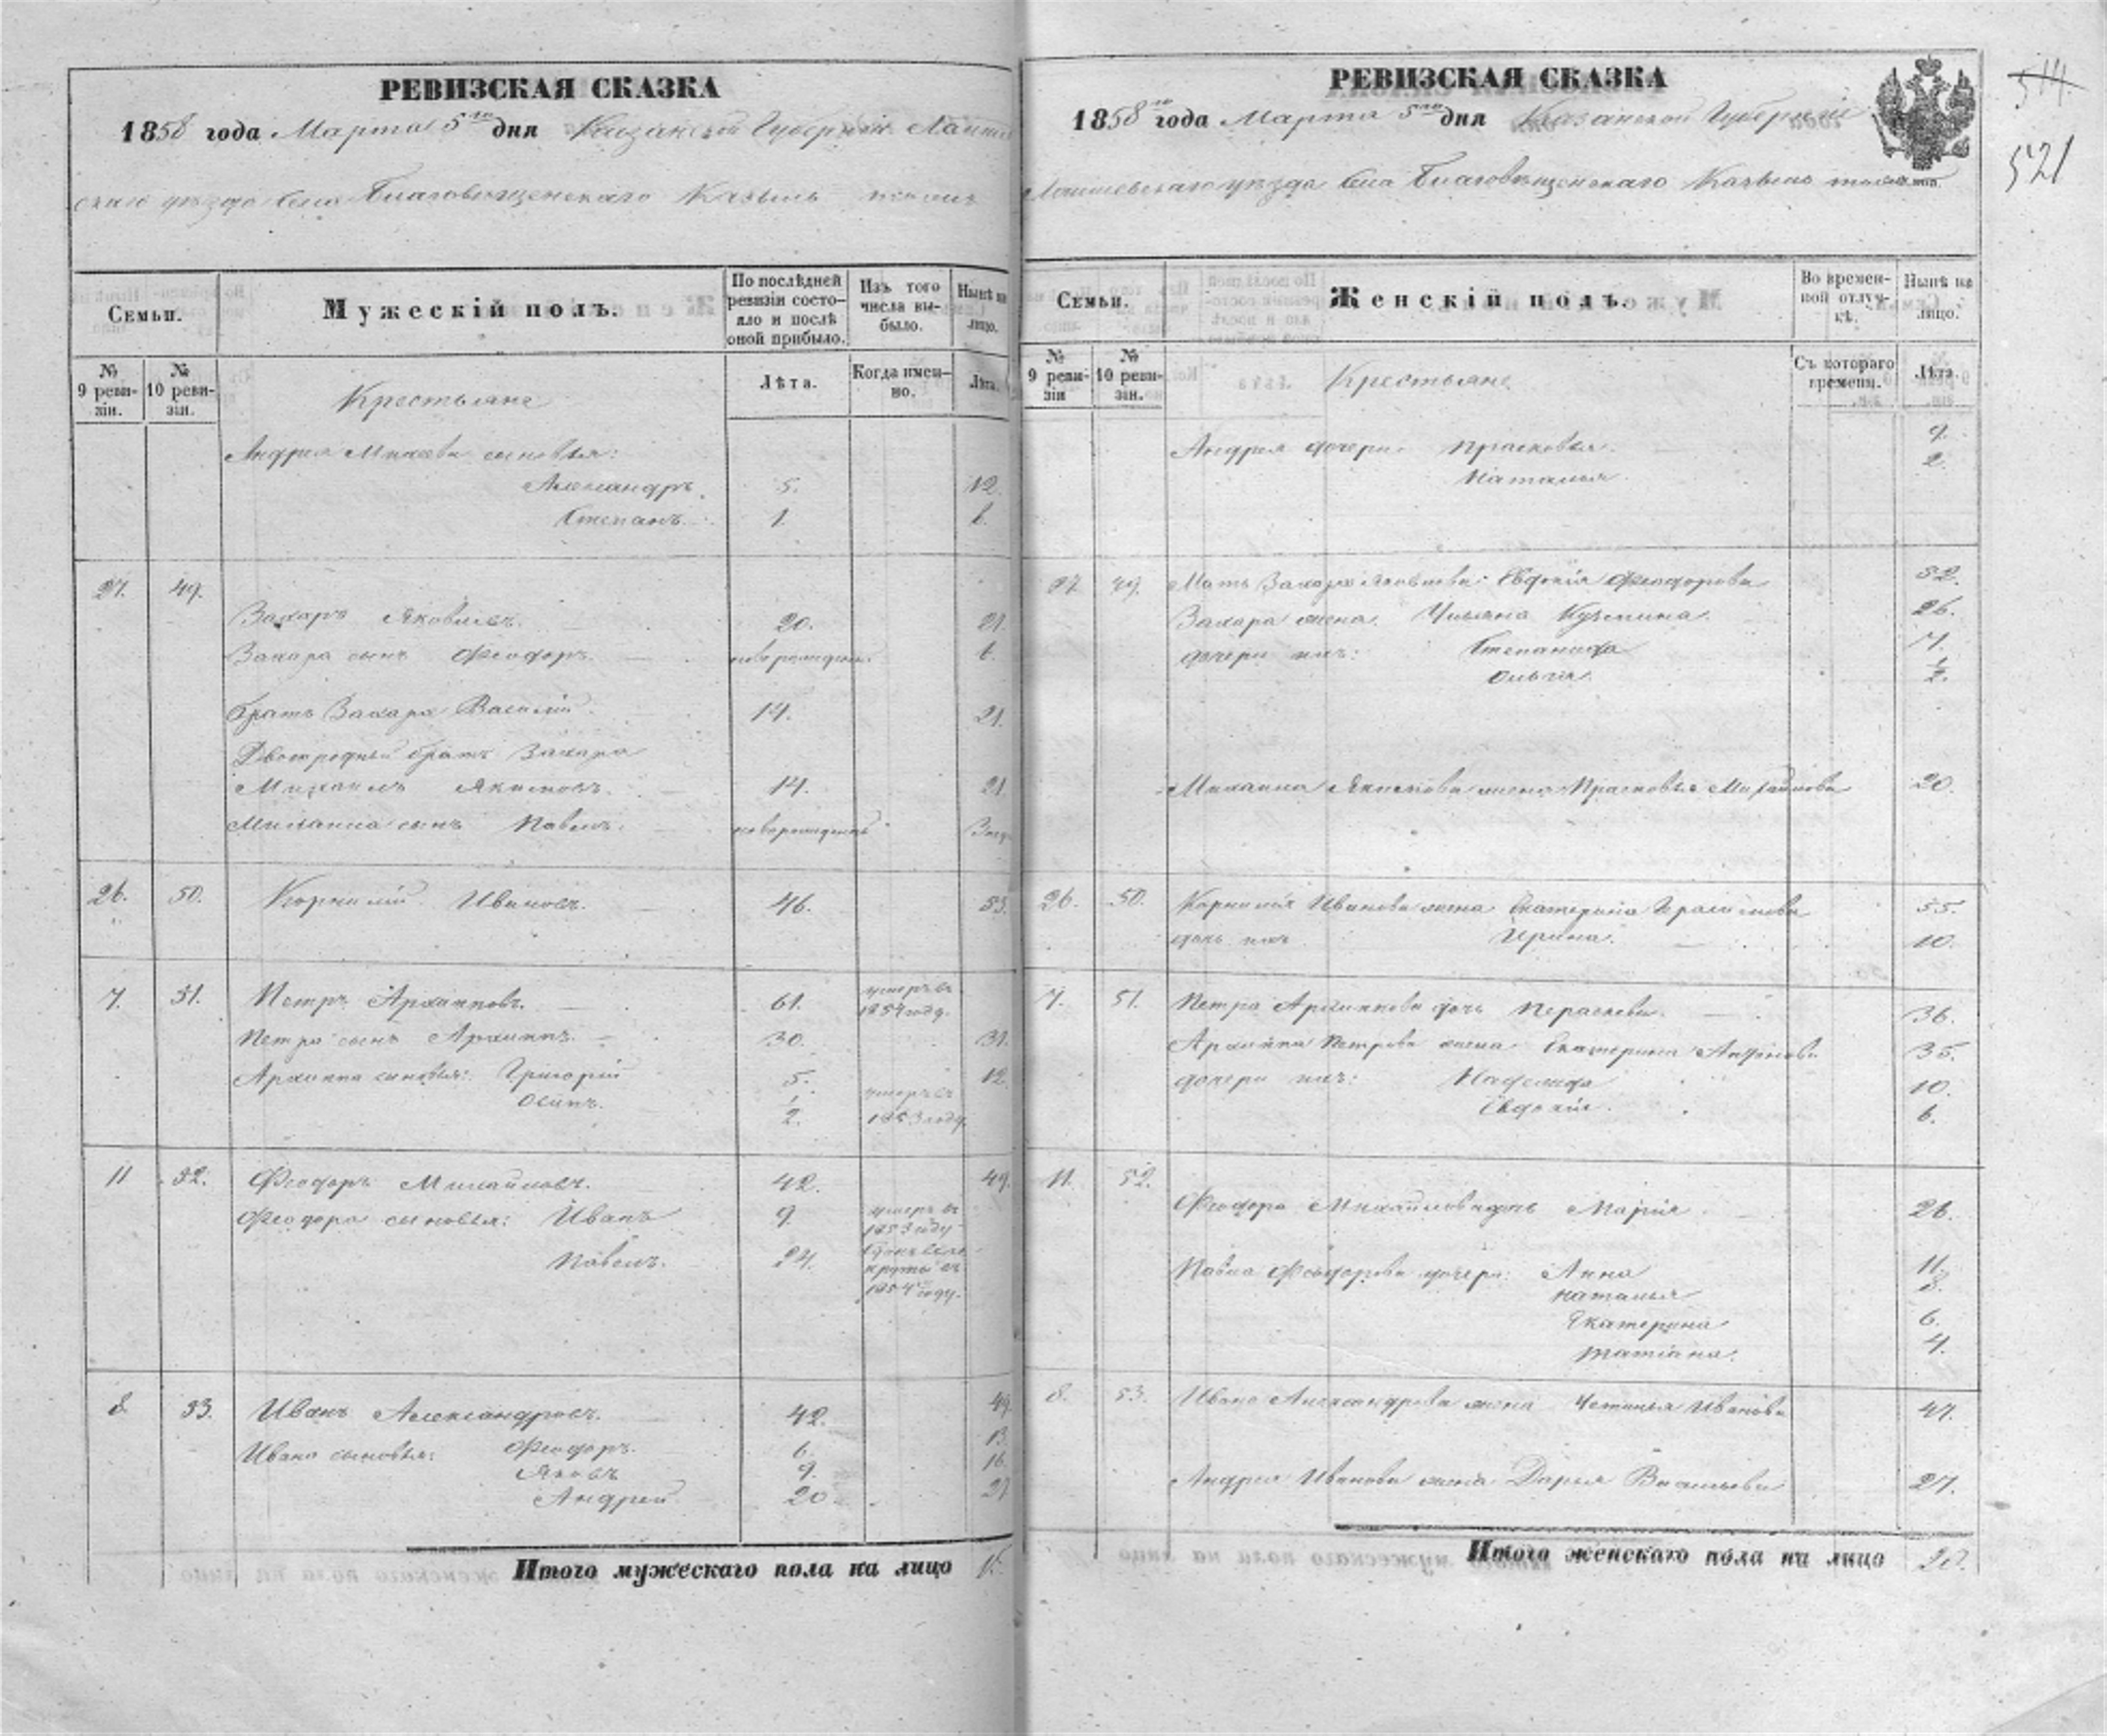 РЕВИЗСКАЯ СКАЗКА
1858 года Марта 5го дня Казанской Губернiи Лаише
скаго уѣзда Села Благовѣщенскаго Казыль тожъ
Семьи.
Мужескiй полъ.
По послѣдней ревизiи состо-
яло и послѣ оной прибыло.
Изъ того числа вы-
было.
Нынѣ на лицо.
№ 9 реви-
зiи.
№ 10 реви-
зiи.
Крестьяне
Лѣта.
Когда имен-
но.
Лѣта.
Андрея сыновья:
Александръ 5. 12.
Степанъ 1. 8.
27. 49.
Захаръ Яковлевъ. 20. 27.
Захара сынъ Феодоръ. новорожден. 6.
братъ Захара Василiй 14. 21.
Двоюродный братъ Захара
Михаилъ Якимовъ. 14. 21.
Михаила сынъ Павелъ. новорожденъ
26. 50. Корнилiй Ивановъ. 46. 53.
7. 51. Петръ Архиповъ. 61. умеръ въ
185 году.
Петра сынъ Архиппъ. 30. 37.
Архиппа сыновья: Григорiй 5. 12.
Осипъ. 1/2. умеръ въ
1853 году
11 52. Феодоръ Михайловъ. 42. 49.
Феодора сыновья: Иванъ 9. умеръ въ
1853 году
Павелъ. 24. въ ре-
круты въ
1854 году.
8. 53. Иванъ Александровъ. 42. 49.
Ивана сыновья: Феодоръ. 6. 13.
Яковъ 9. 16.
Андрей 20. 27
Итого мужескаго пола на лицо
РЕВИЗСКАЯ СКАЗКА
1858го года Марта 5го дня Казанской Губернiи
Лаишевскаго уѣзда Села Благовѣщенскаго Казыль тожъ
514.
521
Семьи.
Женскiй полъ.
Во времен-
ной отлуч-
кѣ.
Нынѣ на лицо.
№ 9 реви-
зiи
№ 10 реви-
зiи.
Крестьяне
Съ котораго времени.
Лѣта.
Андрея дочери Прасковья. 9.
Наталья. 2.
27 49. Мать Захара Яковлева: Евдокiя Феодорова 52.
Захара жена Ульяна Кузмина. 26.
дочери ихъ: Степанида 7.
Ольга. 1/2.
Михаила Якимова жена Прасковья Михайлова 20.
26. 50. Корнилiя Иванова жена Екатерина Герасимова 55.
дочь ихъ Ирина. 10.
7. 51. Петра Архиппова дочь Перасковья. 36.
Архиппа Петрова жена Екатерина Антонова 35.
дочери ихъ: Надежда 10.
Евдокiя. 6.
11. 52.
Феодора Михайлова дочь Марiя 26.
Павла Феодорова дочери: Анна 11.
Наталья 8.
Екатерина 6.
Татiана. 4.
8. 53. Ивана Александрова жена Устинья Иванова 47.
Андрея Иванова жена Дарья Васильева 27.
Итого женскаго пола на лицо 20.